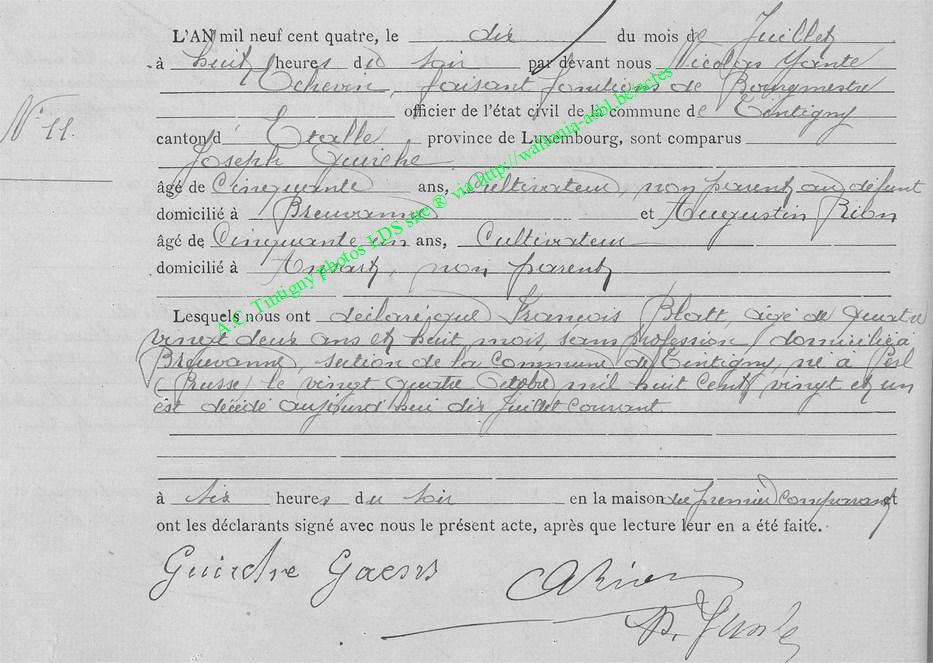 L'AN mil neuf cent quatre, le dix du mois de Juillet
à huit heures du soir par devant nous Nicolas
Echevin, faisant fonctions de Bourgmestre
officier de l'état civil de la commune de Tintigny
N° 11.
canton d' Etalle province de Luxembourg, sont comparus
Joseph
âgé de Cinquante ans, Cultivateur, non parent au défunt
domicilié à Breuvanne et Augustin
âgé de Cinquante un ans, Cultivateur
domicilié à Ansart, non parent
Lesquels nous ont déclaré que François Blatt, âgé de quatre
vingt deux ans et huit mois, sans profession, domicilié à
Breuvanne, section de la Commune de Tintigny, né à Perl
(Prusse) le vingt quatre Octobre mil huit cent vingt et un
est décédé aujourd'hui dix Juillet courant
à six heures du soir en la maison du premier comparant
ont les déclarants signé avec nous le présent acte, après que lecture leur en a été faite.
A.C. Tintigny photos LDS site ® via http://wallonia-asbl.be/actes